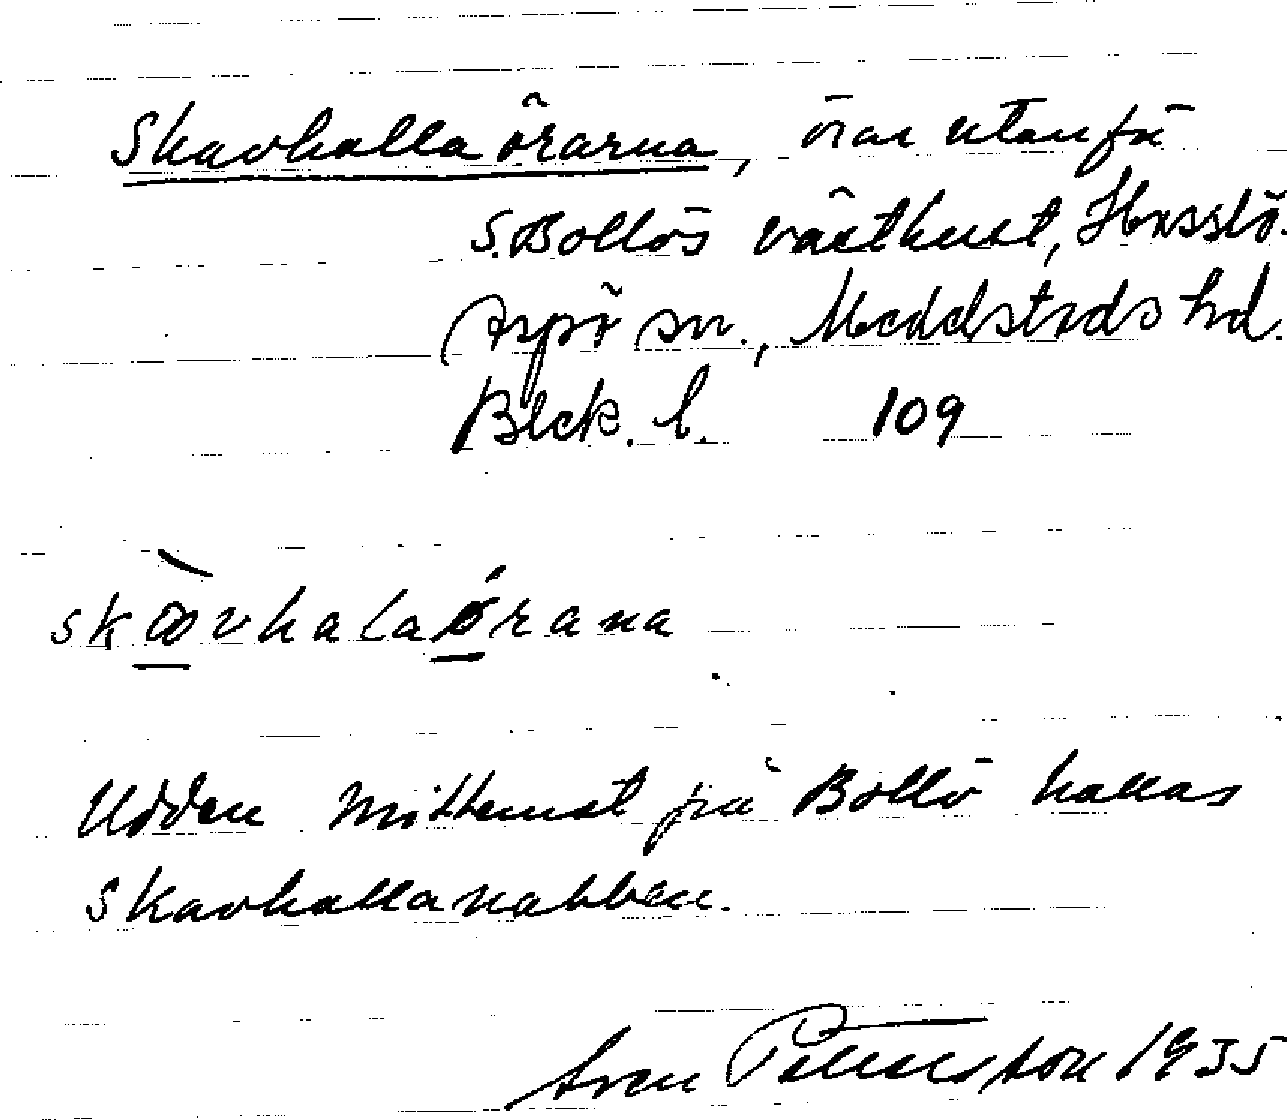 Skavhallaörarna, örar utanför
S. Bollös västkust, Hasslö.
Aspö sn., Medelstads hd.
Blek. l. 109
skàvhalaǿrana
Udden mitterst på Bollö kallas
Skavhallanabben.
Sven Petersson 1935